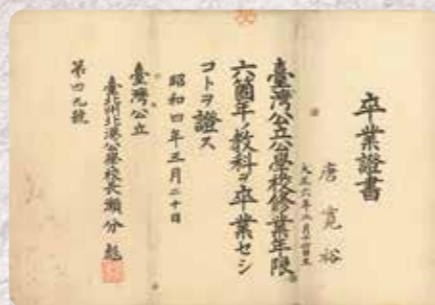 卒業證書
唐寬裕
大正六年 月 日生
臺灣公立公學校修業年限
六箇年ノ教科ヲ卒業セシ
コトヲ證ス
昭和四年三月二十日
臺灣公立
臺北州北港公學校長瀨分彪
第四九號